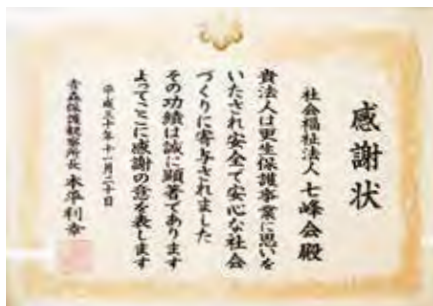 感謝状
社会福祉法人 七峰会殿
貴法人は更生保護事業に思いを
いたされ安全で安心な社会
づくりに寄与されました
その功績は誠に顕著であります
よってここに感謝の意を表します
平成三十年十一月二十日
青森保護観察所長 本平利幸